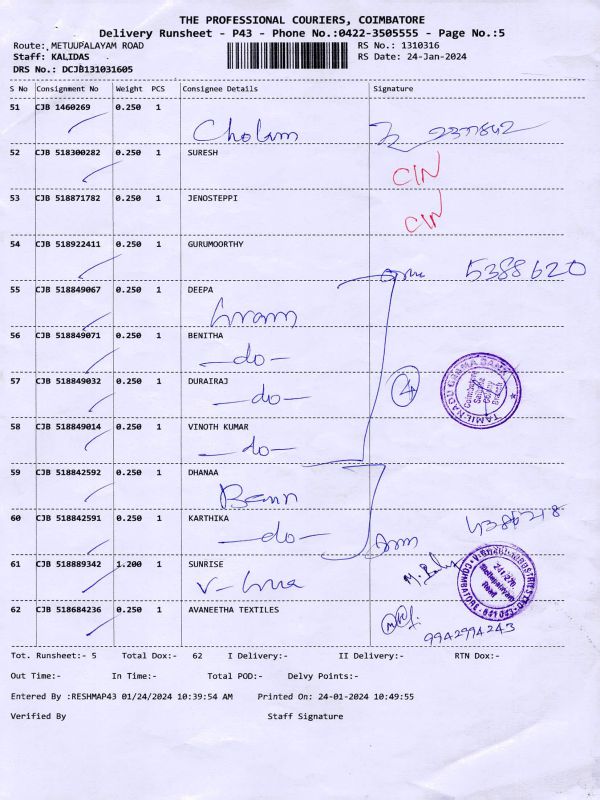 THE PROFESSIONAL COURIERS, COIMBATORE
Delivery Runsheet - P43 - Phone No.:0422-3505555 - Page No.:5
Route: METUUPALAYAM ROAD RS No.: 1310316
Staff: KALIDAS RS Date: 24-Jan-2024
DRS No.: DCJB131031605
S No Consignment No Weight PCS Consignee Details Signature
51 CJB 1460269 0.250 1
Cholam 2377842
52 CJB 518300282 0.250 1 SURESH
CIN
53 CJB 518871782 0.250 1 JENOSTEPPI
CIN
54 CJB 518922411 0.250 1 GURUMOORTHY
5388620
55 CJB 518849067 0.250 1 DEEPA
56 CJB 518849071 0.250 1 BENITHA
-do-
57 CJB 518849032 0.250 1 DURAIRAJ
-do- 4
TAMIL NADU GRAMA BANK
58 CJB 518849014 0.250 1 VINOTH KUMAR
-do-
59 CJB 518842592 0.250 1 DHANAA
60 CJB 518842591 0.250 1 KARTHIKA
-do-
61 CJB 518889342 1.200 1 SUNRISE
62 CJB 518684236 0.250 1 AVANEETHA TEXTILES
9942994243
Tot. Runsheet:- 5 Total Dox:- 62 I Delivery:- II Delivery:- RTN Dox:-
Out Time:- In Time:- Total POD:- Delvy Points:-
Entered By :RESHMAP43 01/24/2024 10:39:54 AM Printed On: 24-01-2024 10:49:55
Verified By Staff Signature